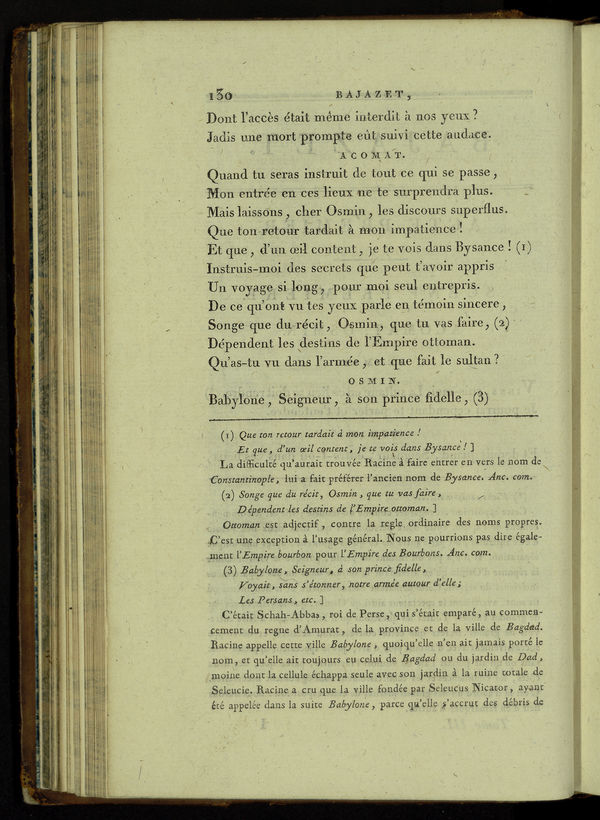 130 BAJAZET,
Dont l'accès était même interdit à nos yeux ?
Jadis une mort prompte eût suivi cette audace.
ACOMAT.
Quand tu seras instruit de tout ce qui se passe,
Mon entrée en ces lieux ne te surprendra plus.
Mais laissons, cher Osmin, les discours superflus.
Que ton retour tardait à mon impatience !
Et que, d'un œil content, je te vois dans Bysance ! (1)
Instruis-moi des secrets que peut t'avoir appris
Un voyage si long, pour moi seul entrepris.
De ce qu'ont vu tes yeux parle en témoin sincere,
Songe que du récit, Osmin, que tu vas faire, (2)
Dépendent les destins de l'Empire ottoman.
Qu'as-tu vu dans l'armée, et que fait le sultan ?
OSMIN.
Babylone, Seigneur, à son prince fidelle, (3)
(1) Que ton retour tardait à mon impatience !
Et que, d'un œil content, je te vois dans Bysance ! ]
La difficulté qu'aurait trouvée Racine à faire entrer en vers le nom de
Constantinople, lui a fait préférer l'ancien nom de Bysance. Anc. com.
(2) Songe que du récit, Osmin, que tu vas faire,
Dépendent les destins de l'Empire ottoman. ]
Ottoman est adjectif, contre la regle ordinaire des noms propres.
C'est une exception à l'usage général. Nous ne pourrions pas dire égale-
ment l'Empire bourbon pour l'Empire des Bourbons. Anc. com.
(3) Babylone, Seigneur, à son prince fidelle,
Voyait, sans s'étonner, notre armée autour d'elle ;
Les Persans, etc. ]
C'était Schah-Abbas, roi de Perse, qui s'était emparé, au commen-
cement du regne d'Amurat, de la province et de la ville de Bagdad.
Racine appelle cette ville Babylone, quoiqu'elle n'en ait jamais porté le
nom, et qu'elle ait toujours eu celui de Bagdad ou du jardin de Dad,
moine dont la cellule échappa seule avec son jardin à la ruine totale de
Seleucie. Racine a cru que la ville fondée par Seleucus Nicator, ayant
été appelée dans la suite Babylone, parce qu'elle s'accrut des débris de